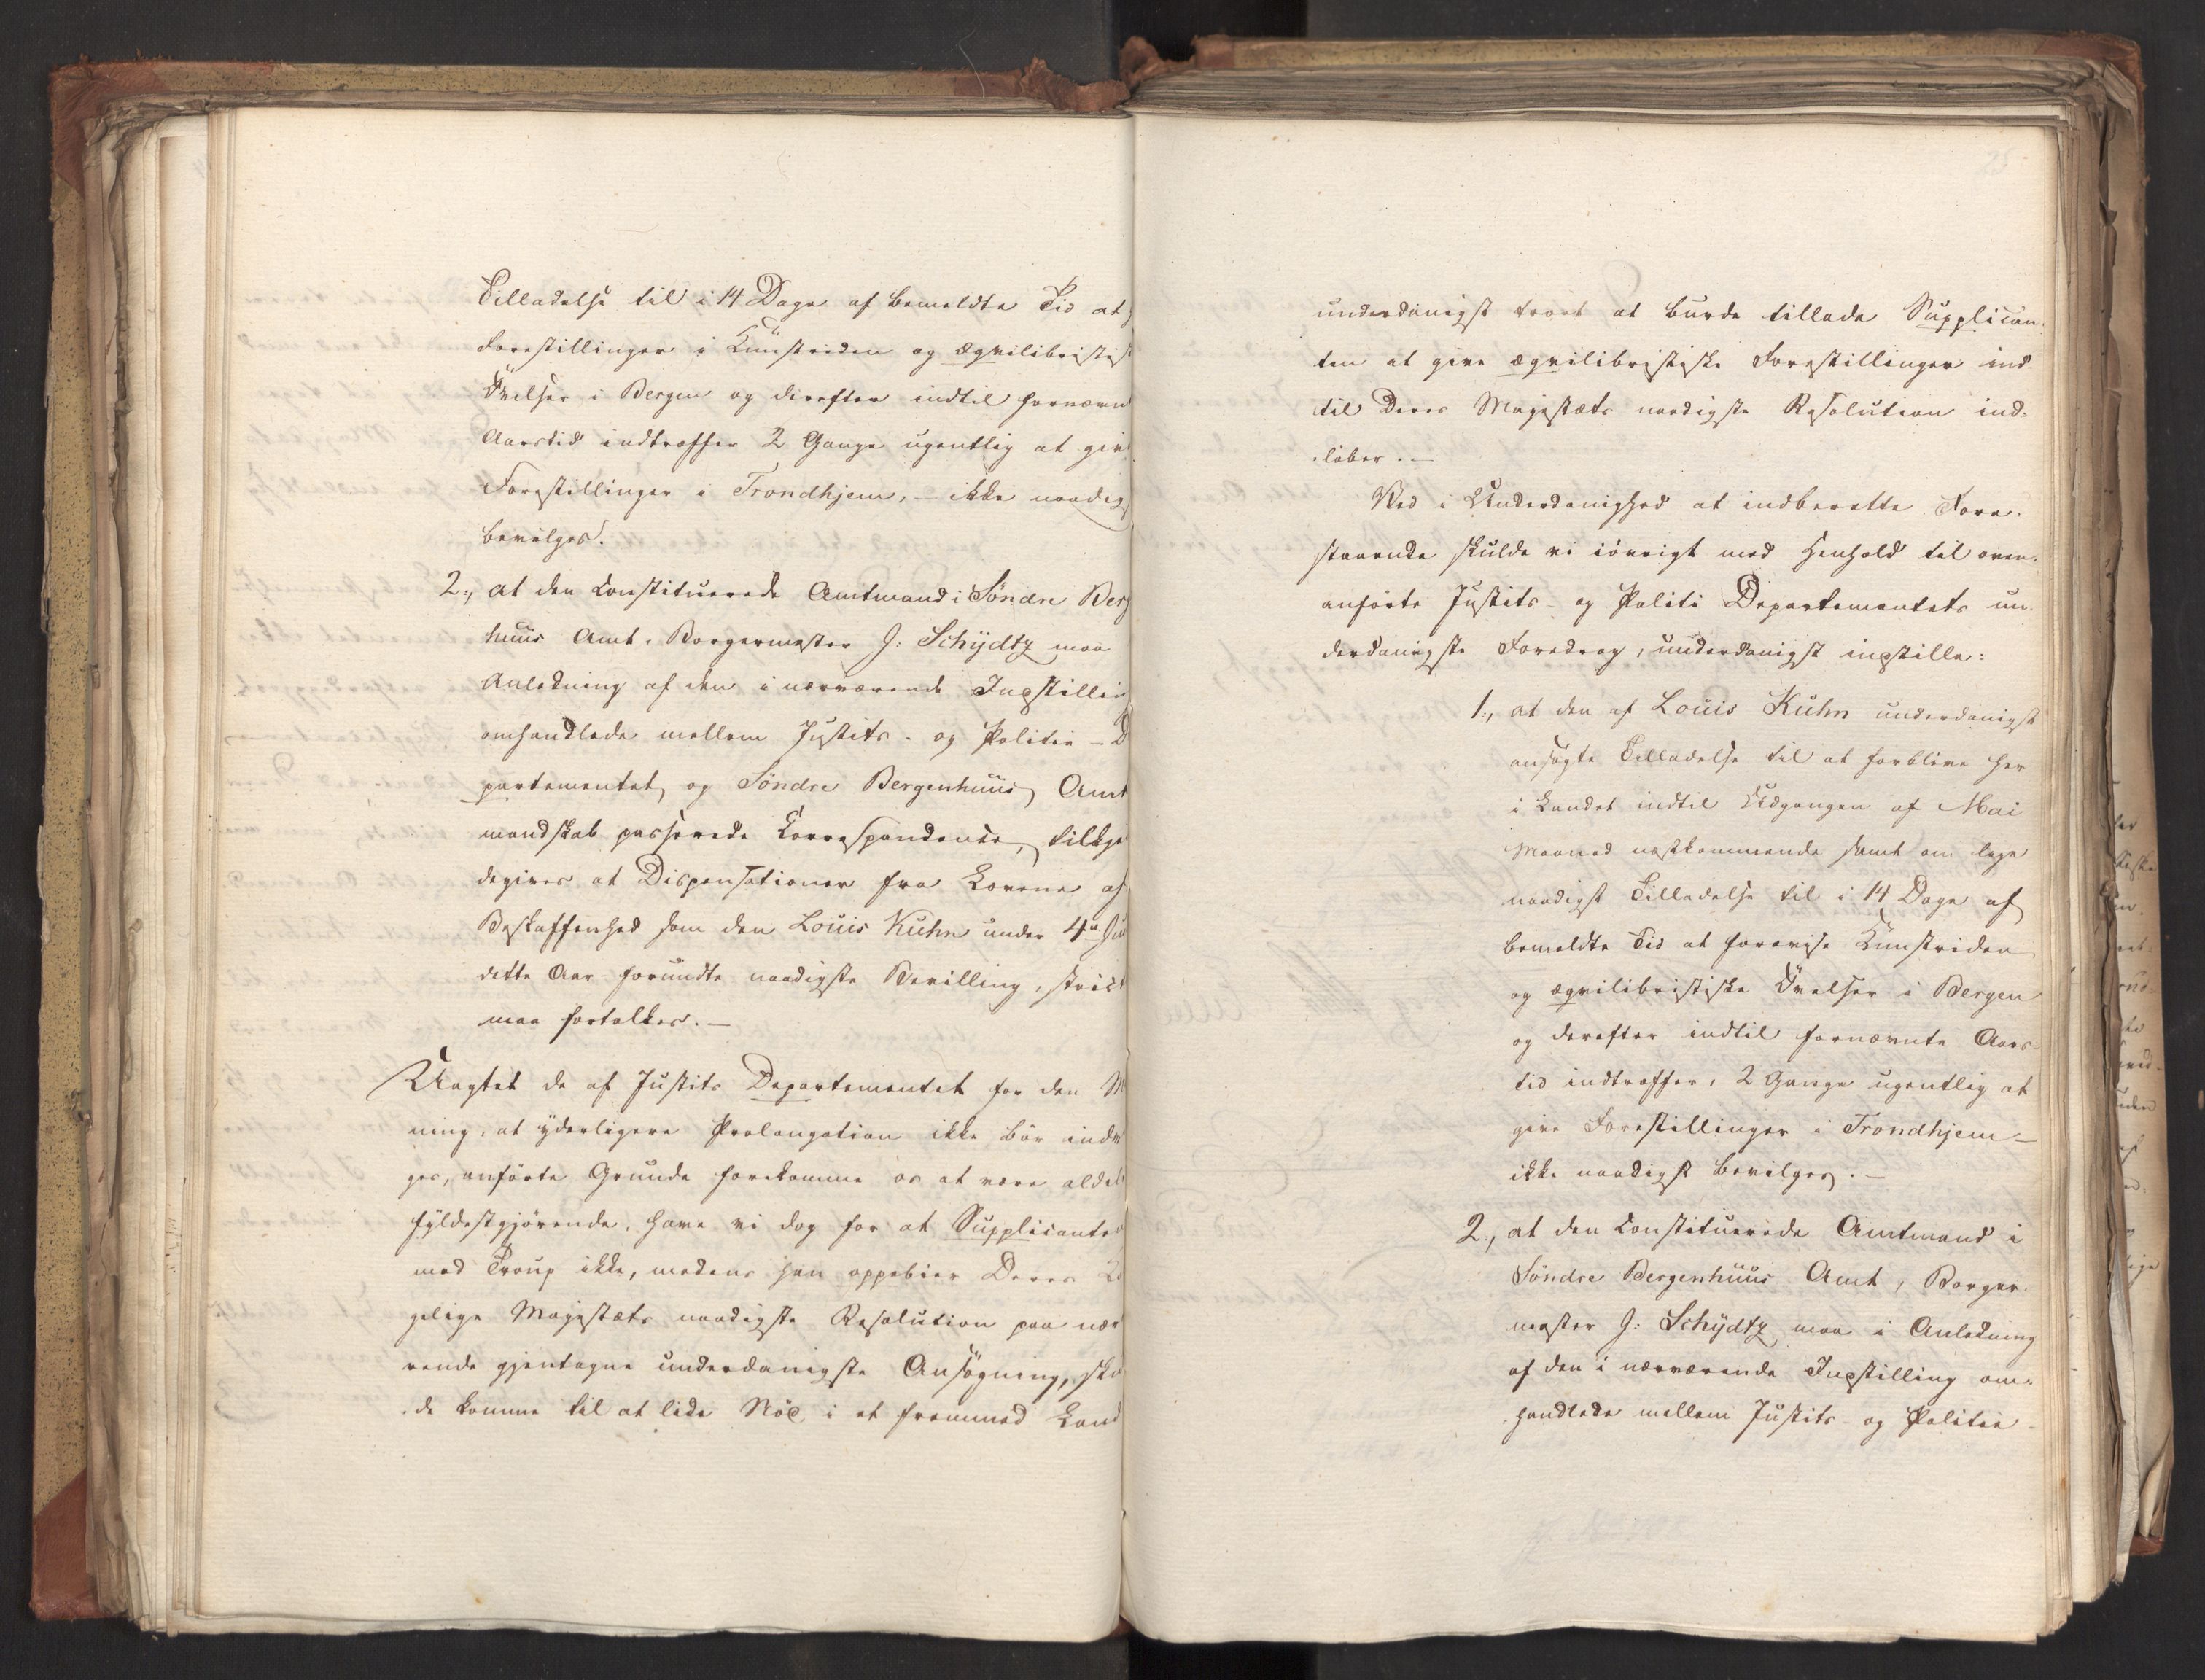 Tilladelse til i 14 Dage af bemeldte Tid at
Forestillinger i Kunstriden og ægvilibristist
Øvelser i Bergen og derefter indtil fornævn
Aarstid indtræffer 2 Gange ugentlig at giv
Forestillinger i Trondhjem, – ikke naadig
bevilges.
2., at den constituerede Amtmand i Søndre Berg
huus Amt, Borgermester J: Schydtz maa
Anledning af den i nærværende Indstillin
omhandlede mellem Justits- og Politie- D
partementet og Søndre Bergenhuus Amt
mandskab passerede Correspondence, tilkje
degives at Dispensationer fra Lovene af
Beskaffenhed som den Louis Kuhn under 4de Ju
dette Aar forundte naadigste Bevilling, strict
maa fortolkes. –
Uagtet de af Justits Departementet for den M
ning, at yderligere Prolongation ikke bør indv
ges, anførte Grunde forekomme os at være aldel
fyldestgjørende, have vi dog for at Supplicante
med Troup ikke, medens han oppebier Deres Ko
gelige Majestæts naadigste Resolution paa nær
rende gjentagne underdanigste Ansøgning, sku
de komme til at lide Nød i et fremmed Land
25
underdanigst troet at burde tillade Supplican-
ten at give ægvilibristiske Forestillinger ind-
til Deres Majestæts naadigste Resolution ind-
løber. –
Ved i Underdanighed at indberette Fore-
staaende skulde vi iøvrigt med Henhold til oven-
anførte Justits- og Politi Departementets un-
derdanigste Foredrag, underdanigst indstille:
1., at den af Louis Kuhn underdanigst
ansøgte Tilladelse til at forblive her
i Landet indtil Udgangen af Mai
Maaned næstkommende samt om lige
naadigst Tilladelse til i 14 Dage af
bemeldte Tid at forevise Kunstriden
og ægvilibristiske Øvelser i Bergen
og derefter indtil fornævnte Aars-
tid indtræffer, 2 Gange ugentlig at
give Forestillinger i Trondhjem –
ikke naadigst bevilges. –
2., at den constituerede Amtmand i
Søndre Bergenhuus Amt, Borger-
mester J: Schydtz maa i Anledning
af den i nærværende Indstilling om-
handlede mellem Justits- og Politie-